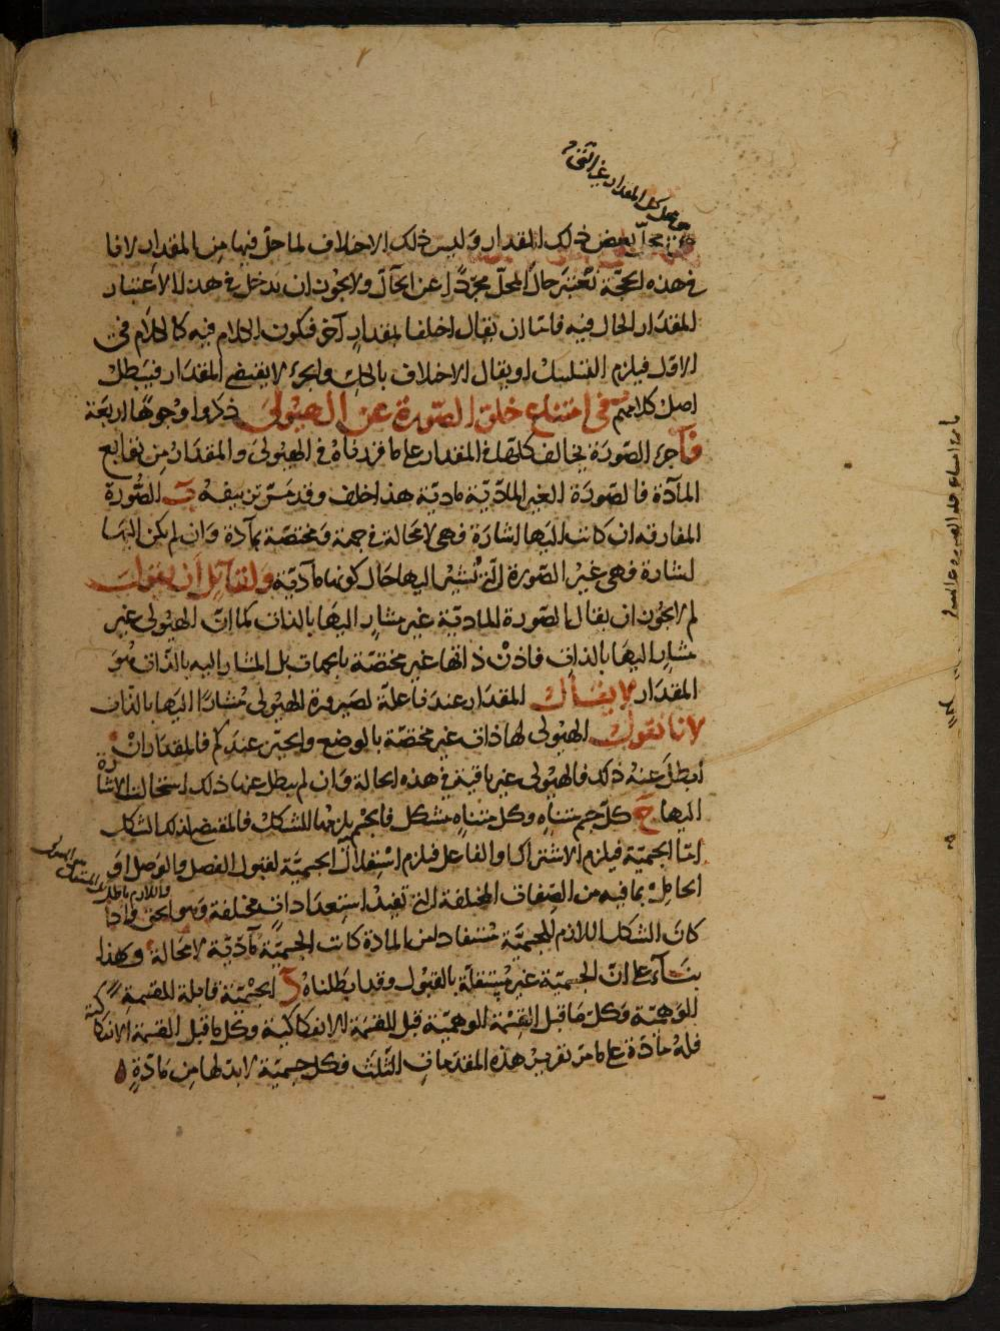 محل كل المقدار غير الشي
محل بعض ذلك المقدار وليس ذلك الاختلاف لما حلّ فيها من المقدار لانا
في هذه الحجّة نعتبر حال المحلّ مجرّدًا عن الحالّ ولا يجوز ان يدخل في هذا الاعتبار
المقدار الحال فيه فاما ان يقال اختلفا بمقدار آخر فيكون الكلام فيه كالكلام في
الاول فيلزم التسلسل او يقال الاختلاف بالكل والجزء لا يقتضي المقدار فيبطل
اصل كلامهم في امتناع خلوّ الصّورة عن الهيولى ذكروا وجوهًا اربعة
آ جزء الصّورة يخالف كلها في المقدار على ما قررناه في الهيولى والمقدار من توابع
المادّة فالصّورة الغير المادّية ماديّة هذا خلف وقد مرّ تزييفه ب الصّورة
المفارقة ان كانت اليها اشارة فهي لا محالة في جهة ومختصّة بمادّة وان لم يكن اليها
اشارة فهي غير الصّورة التي نشير اليها حال كونها مادّيّة ولقائل ان يقول
لم لا يجوز ان يقال الصّورة الماديّة غير مشار اليها بالذات كما انّ الهيولى غير
مشار اليها بالذات فاذن ذاتها غير مختصّة بالجهات بل المشار اليه بالذات هو
المقدار لا يقال المقدار عندنا علّة لصيرورة الهيولى مشارًا اليها بالذات
لانا نقول الهيولى لها ذات غير مختصّة بالوضع والحيّز عندكم فالمقدار ان
ابطل عنه ذلك فالهيولى غير باقية في هذه الحالة وان لم يبطل عنها ذلك استحالت الاشارة
اليها ج كلّ جسم متناه وكل متناه مشكل فالجسم يلزمها الشكل فالمقتضي لذلك الشكل
امّا الجسميّة فيلزم الاشتراك او الفاعل فيلزم استقلال الجسميّة لقبول الفصل والوصل او
الحامل بما فيه من الصّفات المختلفة التي تفيد استعدادات مختلفة وهو الحق واذا
كان الشكل اللازم للجسميّة مستفادا من المادّة كانت الجسميّة مادّيّة لا محالة وهذا
بناء على انّ الجسميّة غير مستقلّة بالقبول وقد ابطلناه د الجسميّة قابلة للقسمة
الوهميّة وكلّ ما قبل القسمة الوهميّة قبل القسمة الانفكاكية وكل ما قبل القسمة الانفكاكية
فله مادّة على ما مرّ تقرير هذه المقدمات الثلث فكل جسميّة لا بدّ لها من مادّةٍ ه